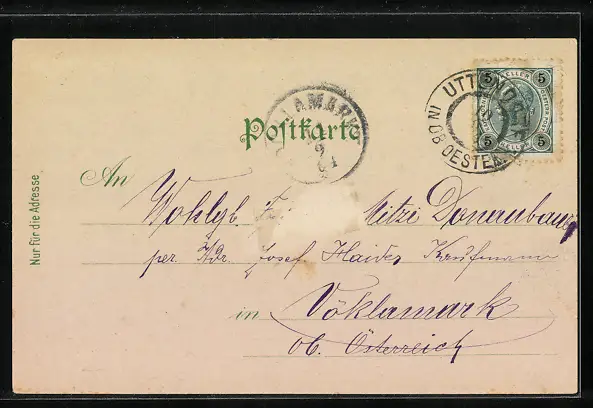 5 HELLER 5
5 HELLER 5
UTTENDORF
IN OB.
OESTER
KLAMARKT
9
04
Postkarte
An
Nur für die Adresse
Wohlgb. Mitzi Donaubauer
per Adr. Josef Haider Kaufmann
in Vöklamark
ob. Österreich